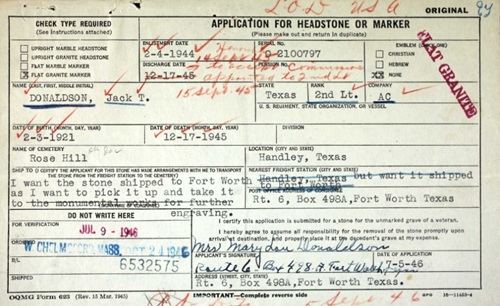 L.O.D USA
ORIGINAL
CHECK TYPE REQUIRED
(See instructions attached)
APPLICATION FOR HEADSTONE OR MARKER
(Please make out and return in duplicate)
UPRIGHT MARBLE HEADSTONE
UPRIGHT GRANITE HEADSTONE
FLAT MARBLE MARKER
X FLAT GRANITE MARKER
ENLISTMENT DATE
2-4-1944
DISCHARGE DATE
12-17-45
15 Sept. 45
SERIAL NO.
O-2100797
EMBLEM (Check one)
CHRISTIAN
HEBREW
XX NONE
FLAT GRANITE
NAME (LAST, FIRST, MIDDLE INITIAL)
DONALDSON, Jack T.
STATE
Texas
RANK
2nd Lt.
COMPANY
AC
U. S. REGIMENT, STATE ORGANIZATION, OR VESSEL
DATE OF BIRTH (MONTH, DAY, YEAR)
2-3-1921
DATE OF DEATH (MONTH, DAY, YEAR)
12-17-1945
DIVISION
NAME OF CEMETERY
Rose Hill
LOCATION (CITY AND STATE)
Handley, Texas
SHIP TO (I CERTIFY THE APPLICANT FOR THIS STONE HAS MADE ARRANGEMENTS WITH ME TO TRANSPORT THE STONE FROM THE FREIGHT STATION TO THE CEMETERY)
NEAREST FREIGHT STATION (CITY AND STATE)
I want the stone shipped to Fort Worth
Handley, Texas but want it shipped
to Fort Worth
as I want to pick it up and take it
POST OFFICE ADDRESS OF CONSIGNEE
to the monumental works for further
engraving.
Rt. 6, Box 498A, Fort Worth Texas
DO NOT WRITE HERE
JUL 9 -1946
W. CHELMSFORD, MASS. OCT 24 1946
6532575
I certify this application is submitted for a stone for the unmarked grave of a veteran.
I hereby agree to assume all responsibility for the removal of the stone promptly upon arrival at destination, and properly place it at the decedent's grave at my expense.
Mrs Mary Lou Donaldson
APPLICANT'S SIGNATURE
7-5-46
Route 6, Box 498.A. Fort Worth, Texas
Rt. 6, Box 498A, Fort Worth, Texas
OQMG Form 623 (Rev. 15 Mar. 1945)
IMPORTANT—Complete reverse side
16-11453-4
Sept 46